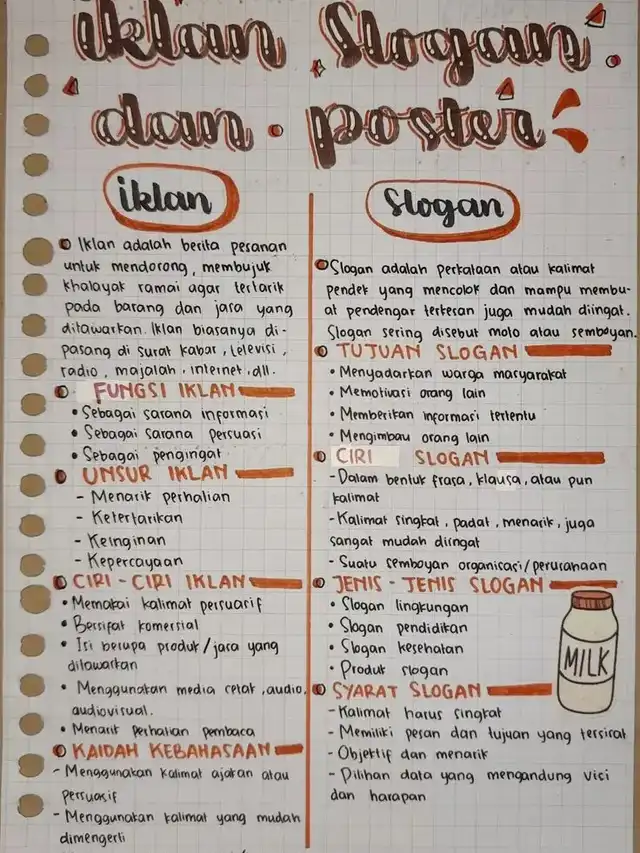 iklan Slogan
dan poster
iklan
Iklan adalah berita pesanan
untuk mendorong, membujuk
khalayak ramai agar tertarik
pada barang dan jasa yang
ditawarkan. Iklan biasanya di-
pasang di surat kabar, televisi,
radio, majalah, internet, dll.
FUNGSI IKLAN
• Sebagai sarana informasi
• Sebagai sarana persuasi
• Sebagai pengingat
UNSUR IKLAN
- Menarik perhatian
- Ketertarikan
- Keinginan
- Kepercayaan
CIRI - CIRI IKLAN
• Memakai kalimat persuasif
• Bersifat komersial
• Isi berupa produk/jasa yang
ditawarkan
• Menggunakan media cetak, audio,
audiovisual.
• Menarik perhatian pembaca
KAIDAH KEBAHASAAN
- Menggunakan kalimat ajakan atau
persuasif
- Menggunakan kalimat yang mudah
dimengerti
Slogan
Slogan adalah perkataan atau kalimat
pendek yang mencolok dan mampu membu-
at pendengar terkesan juga mudah diingat.
Slogan sering disebut moto atau semboyan.
TUJUAN SLOGAN
• Menyadarkan warga masyarakat
• Memotivasi orang lain
• Memberikan informasi tertentu
• Mengimbau orang lain
CIRI SLOGAN
- Dalam bentuk frasa, klausa, atau pun
kalimat
- Kalimat singkat, padat, menarik, juga
sangat mudah diingat
- Suatu semboyan organisasi/perusahaan
JENIS - JENIS SLOGAN
• Slogan lingkungan
• Slogan pendidikan
• Slogan kesehatan
• Produk slogan
MILK
SYARAT SLOGAN
- Kalimat harus singkat
- Memiliki pesan dan tujuan yang tersirat
- Objektif dan menarik
- Pilihan data yang mengandung visi
dan harapan